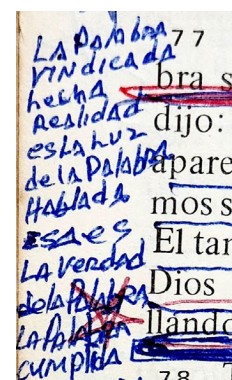 LA PALAbRA
VINdicAdA
hecha
ReAlidAd
es LA Luz
de lA PAlAbRA
HAblAdA
ESA eS
LA VeRdAd
de lA PAlAbRA
LA PALAbRA
CUMPlidA
77
bra s
dijo:
apare
mos s
El tan
Dios
llando
78